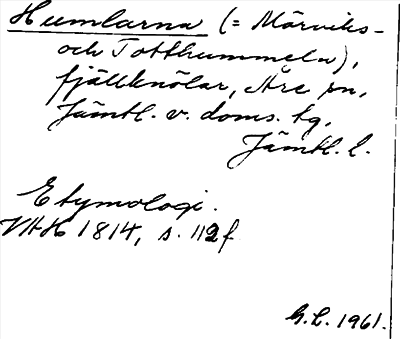 Humlarna (= Mörviks-
och Totthummeln),
fjällknölar, Åre sn,
Jämtl. v. doms. tg,
Jämtl. l.
Etymologi.
VHH 1814, s. 112 f
G.L. 1961.